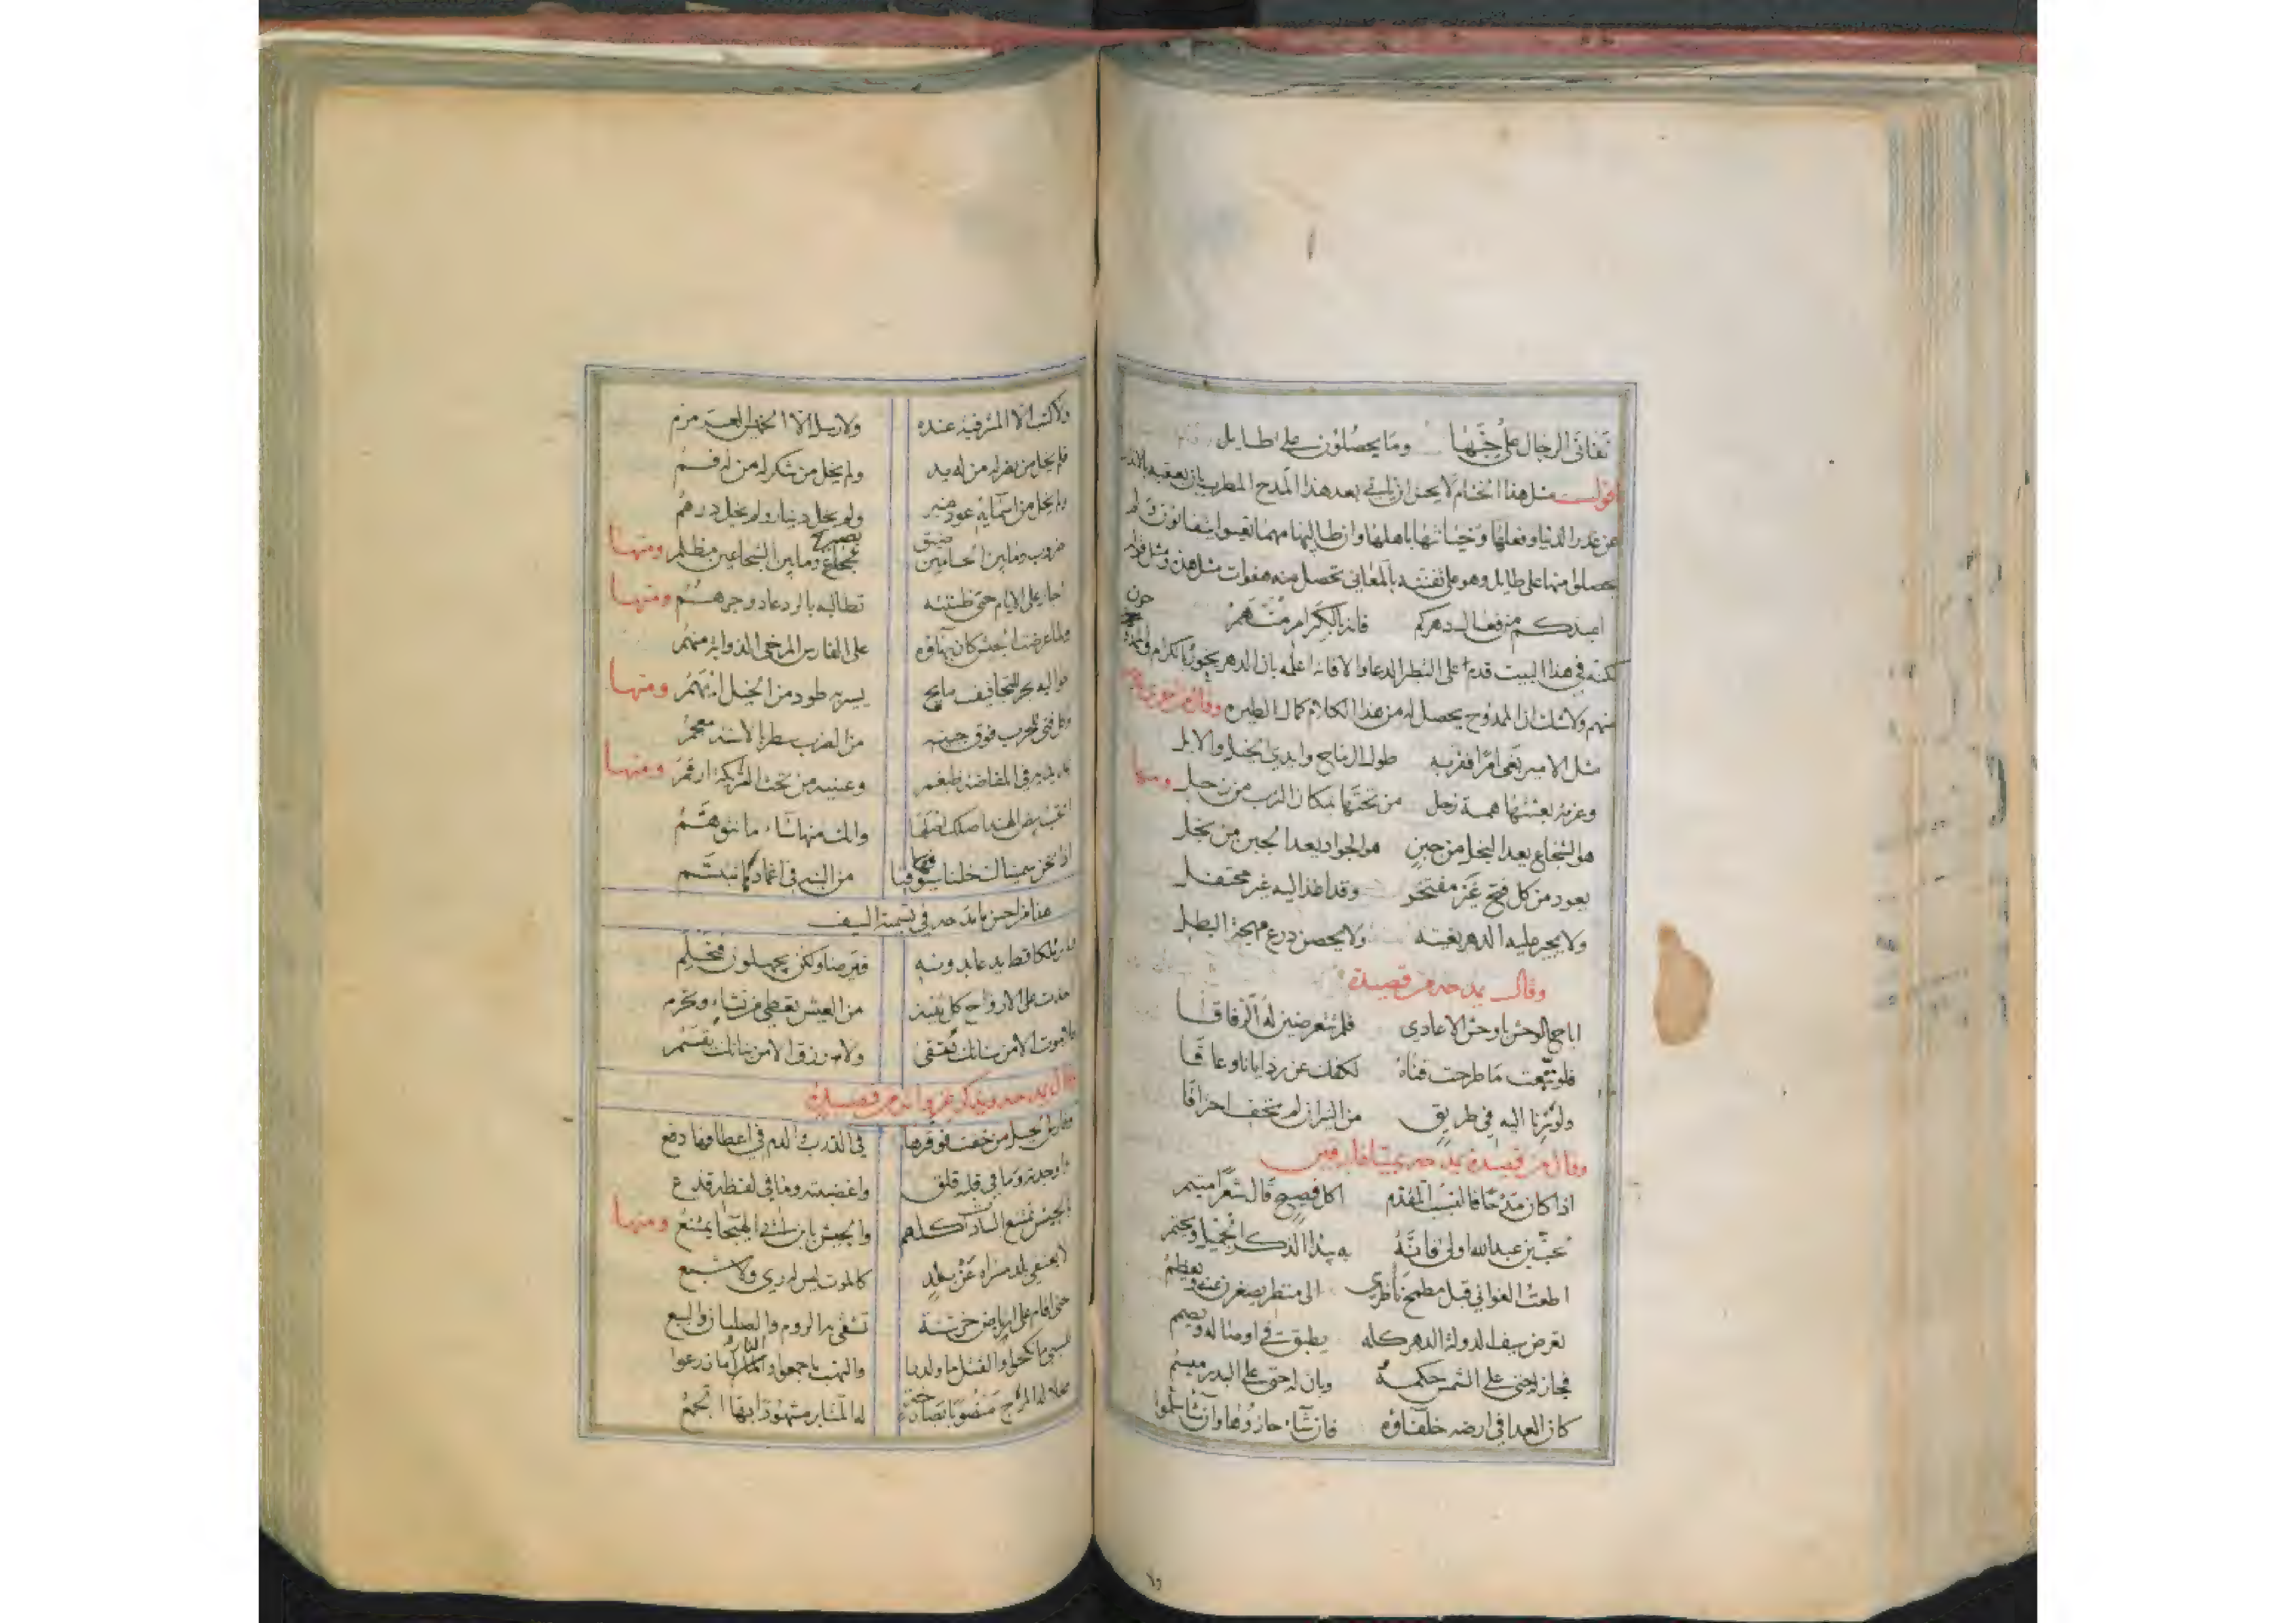 تفانى الرجال على حبها وما يحصلون على طايل
اقول مثل هذا الختام لا يحسن ان ياتي بعد هذا المدح المطرب بان يعقبه
عن غدر الدنيا وفعلها وخيانتها باهلها وان طالبها مهما تفانون ولم
يحصلوا منها على طايل وهو على تفننه بالمعاني تحصل منه هفوات مثل هذه ومثل قوله
اعيذكم من صروف دهركم فانه بالكرام متهم
لكنه في هذا البيت قدم على الشطر الدعاء والا فانه اعلمه بان الدهر يخون بالكرام
منهم ولا شك ان الممدوح يحصل له من هذا الكلام كمال الطيره وقال
مثل الامير بغى امرا فقربه طول الرماح وايدي الخيل والابل
وعزمة بعثتها همة زحل من تحتها بمكان الترب من زحل ومنها
هو الشجاع يعد البخل من جبن هو الجواد يعد الجبن من بخل
يعود من كل فتح غير مفتخر وقد اغذ اليه غير محتفل
ولا يجير عليه الدهر بغيته ولا يحصن درع مهجة البطل
وقال يمدحه من قصيدة
اباح الوحش يا وحش الاعادي فلم تتعرضين له الرفاقا
فلو تبعت ما طرحت قناه لكفك عن رذايانا وعاقا
ولو سرنا اليه في طريق من النيران لم نخف احتراقا
وقال من قصيدة يمدحه بميافارقين
اذا كان مدحا فالنسيب المقدم اكل فصيح قال شعرا متيم
لحب بن عبد الله اولى فانه به يبدا الذكر الجميل ويختم
اطعت الغواني قبل مطمح ناظري الى منظر يصغرن عنه ويعظم
تعرض سيف الدولة الدهر كله يطبق في اوصاله ويصمم
فجاز له حتى على الشمس حكمه وبان له حتى على البدر ميسم
كان العدا في ارضه خلفاؤه فان شاء حازوها وان شا سلموا
ولا
ولا كتب الا المشرفية عنده ولا رسل الا الخميس العرمرم
فلم يخل من نصر له من له يد ولم يخل من شكر له من له فم
ولم يخل من اسمايه عود منبر ولم يخل دينار ولم يخل درهم
ضروب وما بين الحسامين ضيق بصير وما بين الشجاعين مظلم ومنها
اغار على الايام حتى ظننته تطالبه بالرد عاد وجرهم ومنها
ولما عرضت الجيش كان بهاؤه على الفارس المرخى الذوابة منهم
حواليه بحر للتجافيف مايج يسير به طود من الخيل ايهم ومنها
وكل فتى للحرب فوق جبينه من الضرب سطر بالاسنة معجم
يمد يديه في المفاضة ضيغم وعينيه من تحت التريكة ارقم ومنها
وانت منها سا ما تتوهم
اذا نحن سميناك خلنا سيوفنا من التيه في اغمادها تتبسم
هذا من احسن ما مدحه في تسمية السيف
ولم نر ملكا قط يدعا بدونه فيرضا ولكن يجهلون فتحلم
اخذت على الارواح كل ثنية من العيش تعطي من تشاء وتحرم
فلا موت الا من سنانك يتقى ولا رزق الا من بنانك يقسم
وقال يمدحه ويذكر غزواته من قصيدة
وفارس الخيل من خفت فوقرها في الدرب والدم في اعطافها دفع
واوحدته وما في قلبه قلق واغضبته وما في لفظه قذع
بالجيش تمتنع السادات كلهم والجيش بابن ابي الهيجا يمتنع ومنها
لا يعتقي بلد مسراه عن بلد كالموت ليس له ري ولا شبع
حتى اقام على ارباض خرشنة تشقى به الروم والصلبان والبيع
للسبي ما نكحوا والقتل ما ولدوا والنهب ما جمعوا والنار ما زرعوا
مخلا له المرج منصوبا بصارخة له المنابر مشهودا بها الجمع